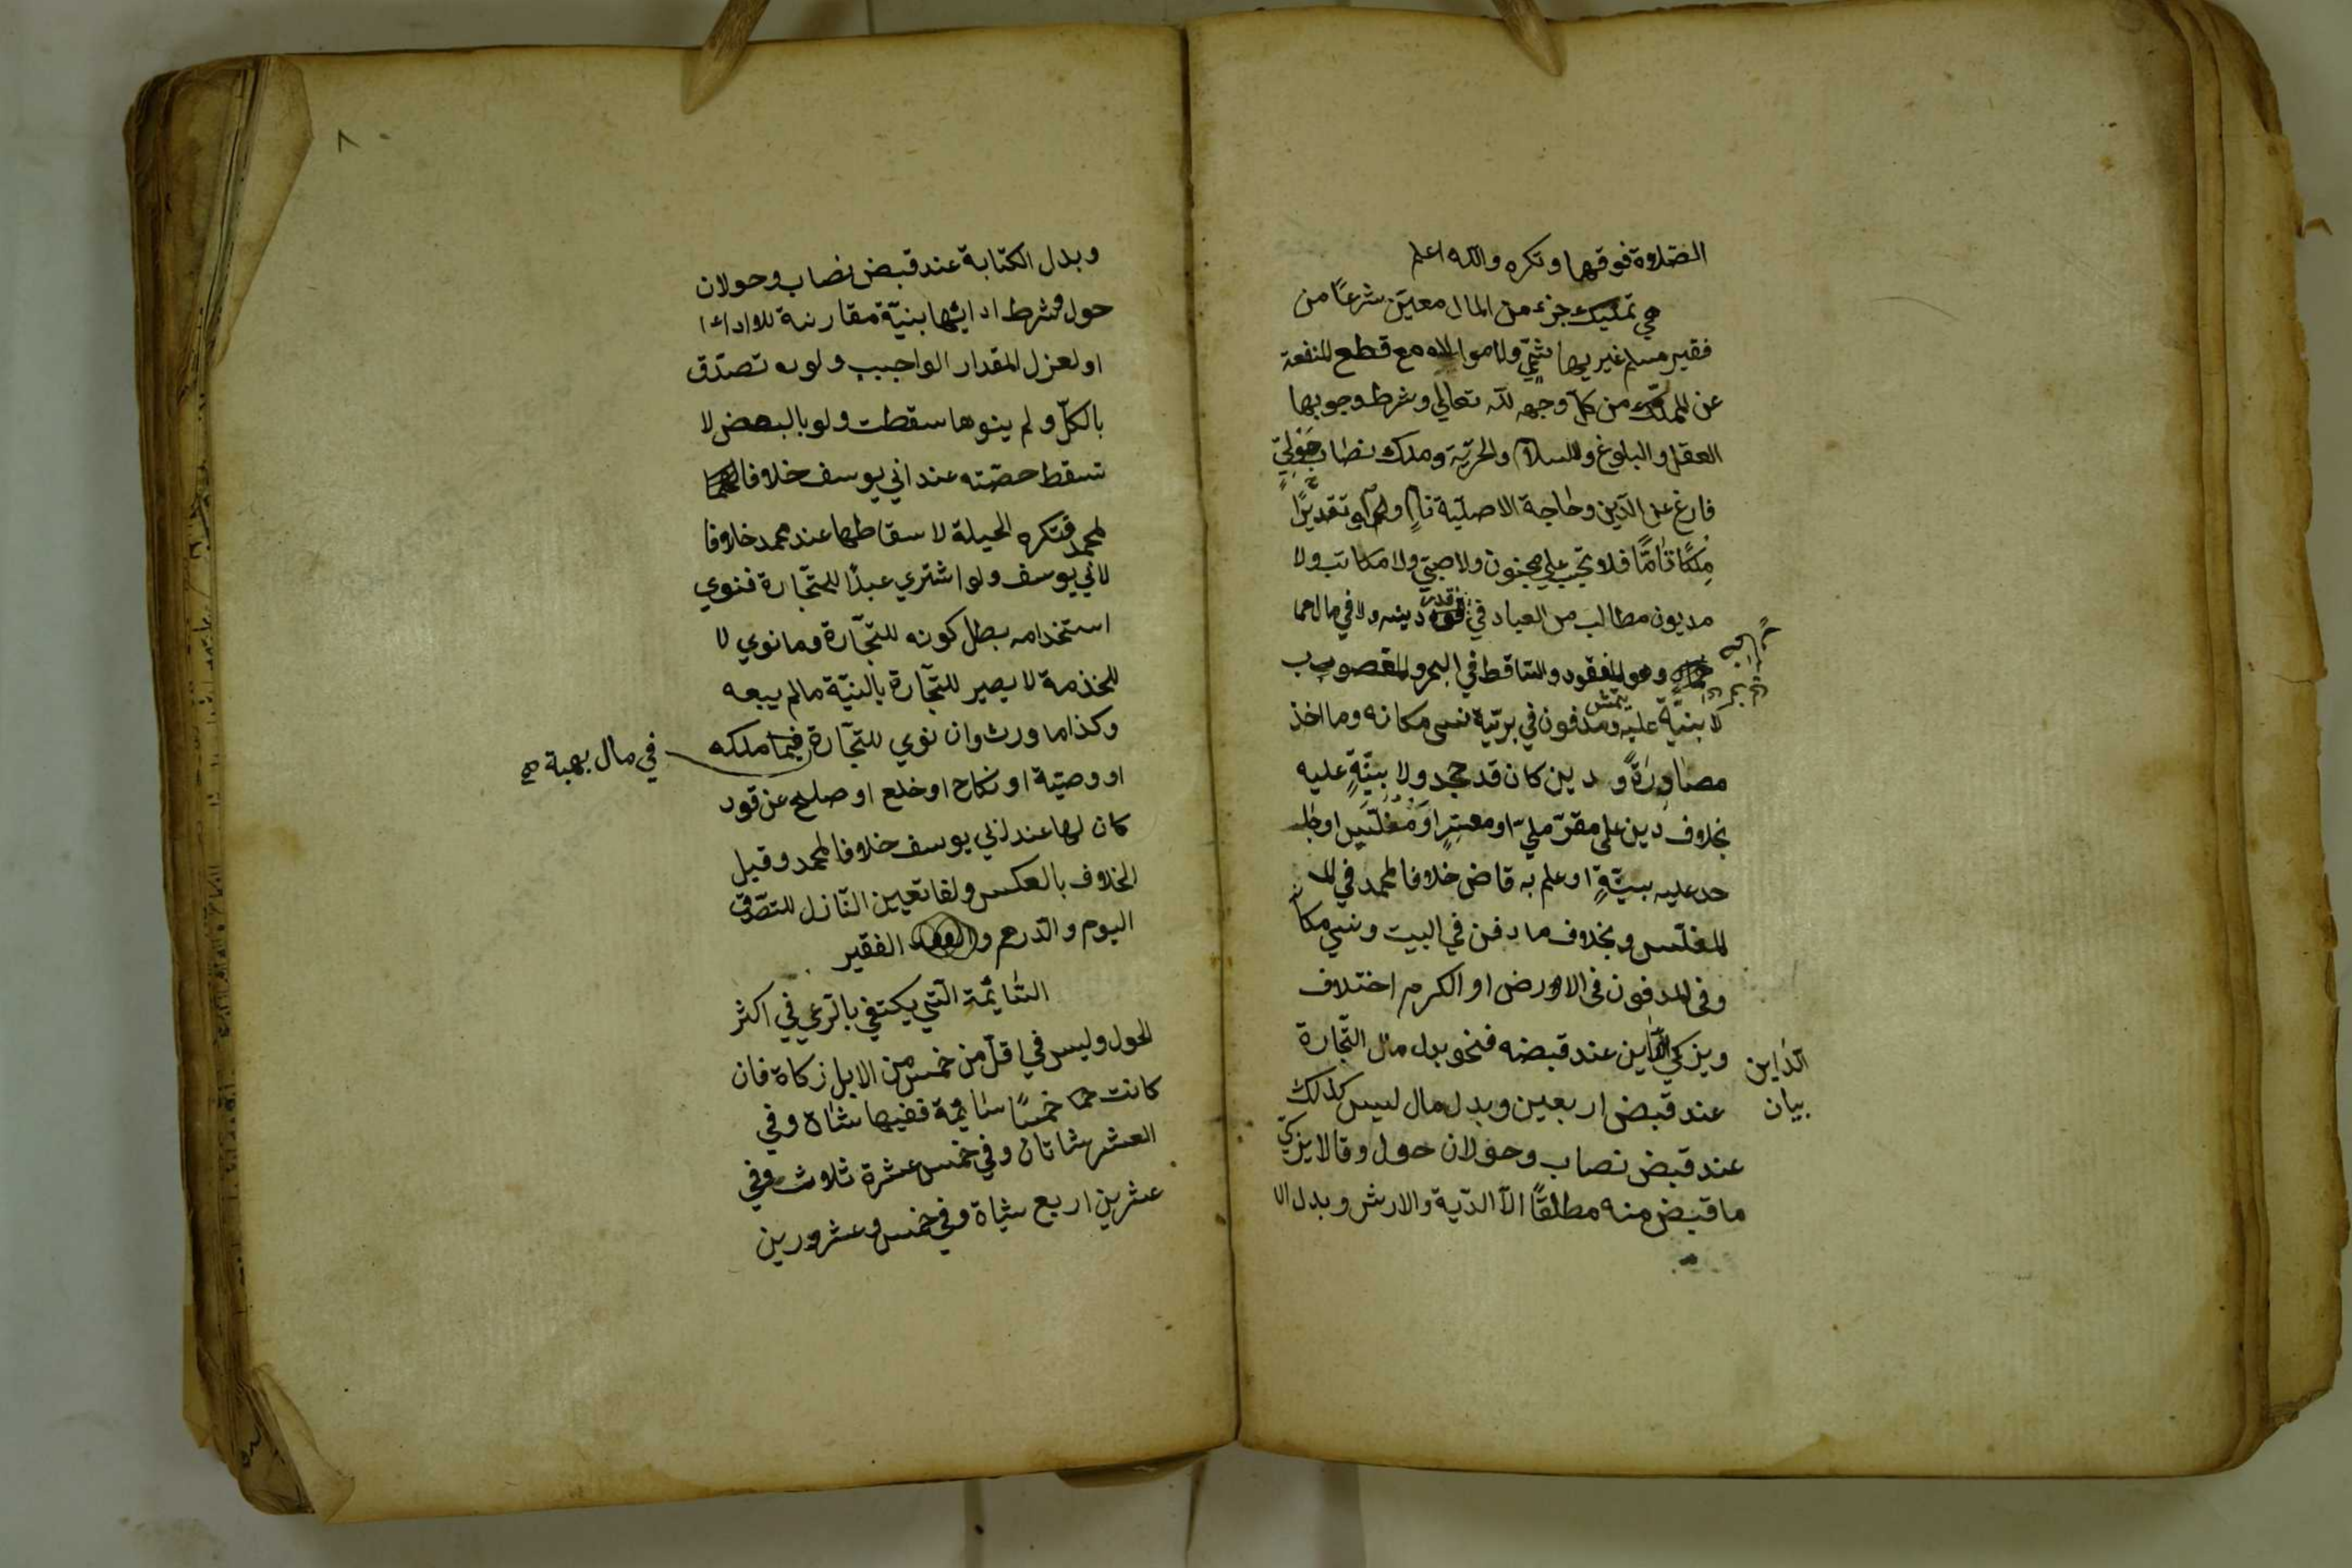 الصّلاوة فوقها وتكره والله اعلم
هي تمليك جزء من المال معيّن شرعًا من
فقير مسلم غير هاشميّ ولا مولاه مع قطع المنفعة
عن المملّك من كلّ وجهه لله تعالي وشرط وجوبها
العقل والبلوغ والاسلام والحريّة وملك نصاب حَوْليّ
فارغ عن الدّين وحاجة الاصليّة نامٍ ولو تقديرًا
مِلكًا تامًّا فلا تجب علي مجنون ولا صبّي ولا مكاتب ولا
مديون مطالب من العباد في قدر دينه ولا في مال
وهو المفقود والسّاقط في البحر والمغصوب
لا بنيّة عليه ومدفون في برّية نسى مكانه وما اخذ
مصادرةً ودين كان قد جحد ولا بيّنةٍ عليه
بخلاف دين على مقرّ مليّ او معسرٍ او مُفَلّسٍ او جا
حد عليه بيّنةٍ او علم به قاض خلافا لمحمد في
المفلّس وبخلاف ما دفن في البيت ونسي مكانه
وفى المدفون فى الاورض او الكرم اختلاف
ويزكي الدّاين عند قبضه فنحو بدل مال التّجارة
الدّاين
بيان
عند قبض اربعين وبدل مال ليس كذلك
عند قبض نصاب وحولان حول وقالا يزكّي
ما قبض منه مطلقًا الّا الدّية والارش وبدل ال
٨
وبدل الكتابة عند قبض نصاب وحولان
حول وشرط ادائها بنيّة مقارنة للاداء
او لعزل المقدار الواجب ولو تصدّق
بالكلّ ولم ينوها سقطت ولو بالبعض لا
تسقط حصّته عند ابي يوسف خلافا
لمحمد وتكره الحيلة لاسقاطها عند محمد خلافا
لابي يوسف ولو اشتري عبدًا للتّجارة فنوي
استخدامه بطل كونه للتجّارة وما نوي لا
للخدمة لا يصير للتجّارة بالنيّة مالم يبعه
وكذا ما ورث وان نوي للتجّارة فيما ملكه
في مال بهبة صح
او وصيّة او نكاح او خلع او صلح عن قود
كان لها عند ابي يوسف خلافا لمحمد وقيل
الخلاف بالعكس ولغا تعيين النّازل للتصّدق
اليوم والدّرهم و الفقير
السّائمّةِ الّتي يكتفي بالرّعي في اكثر
الحول وليس في اقلّ من خمس من الابل زكاة فان
كانت خمسًا سائمّة ففيها شاة وفي
العشر شاتان وفي خمس عشرة ثلاوث وفي
عشرين اربع شياة وفي خمس وعشرورين